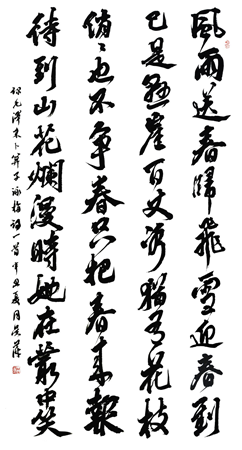 風雨送春歸飛雪迎春到
已是懸崖百丈冰猶有花枝
俏〻也不争春只把春来報
待到山花爛漫時她在叢中笑
毛澤東卜算子咏梅詞一首辛丑夏月